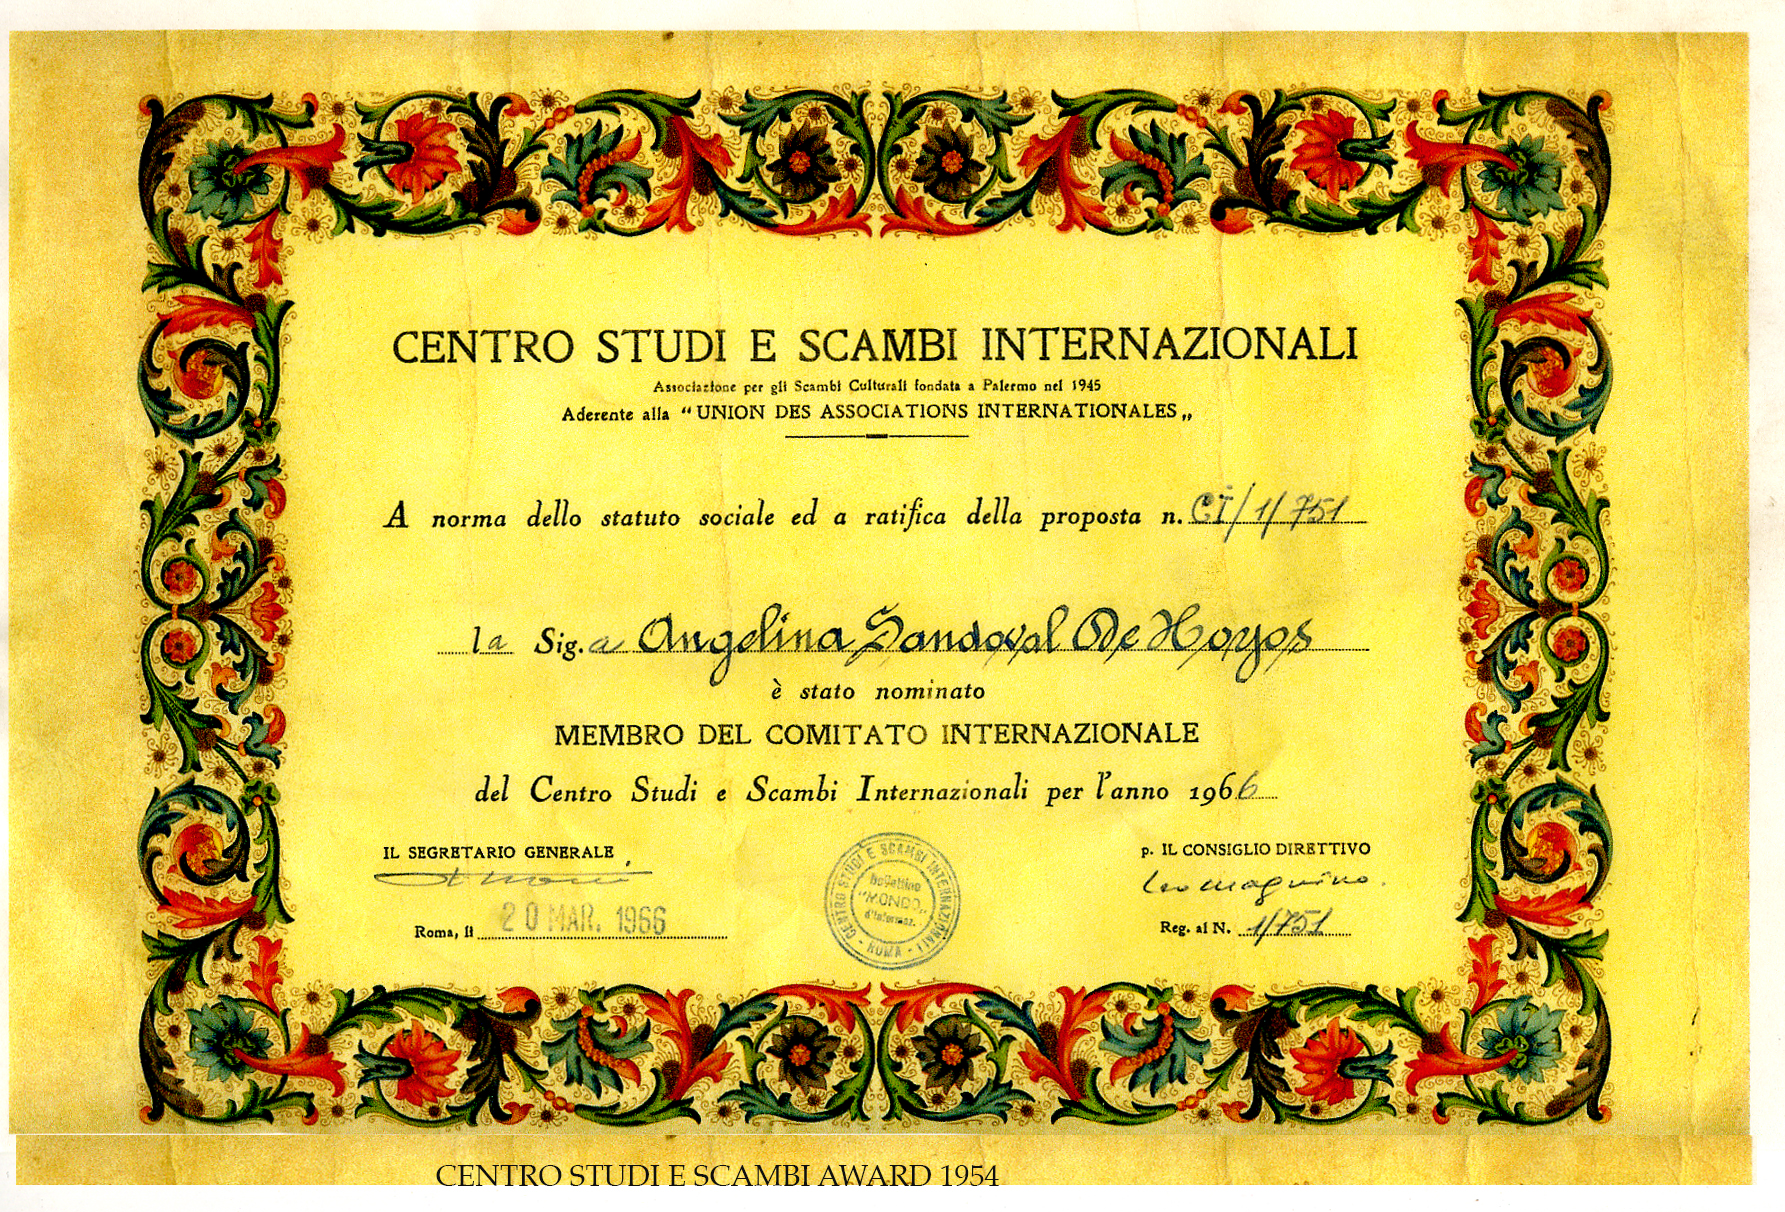 CENTRO STUDI E SCAMBI INTERNAZIONALI
Associazione per gli Scambi Culturali fondata a Palermo nel 1945
Aderente alla “UNION DES ASSOCIATIONS INTERNATIONALES„
A norma dello statuto sociale ed a ratifica della proposta n. CI/1/751
la Sig.a Angelina Sandoval De Hoyos
è stato nominato
MEMBRO DEL COMITATO INTERNAZIONALE
del Centro Studi e Scambi Internazionali per l'anno 1966
IL SEGRETARIO GENERALE
p. IL CONSIGLIO DIRETTIVO
Leo Magnino.
Roma, li 20 MAR. 1966
CENTRO STUDI E SCAMBI INTERNAZIONALI - ROMA -
Bollettino
"MONDO"
d'Informaz.
Reg. al N. 1/751
CENTRO STUDI E SCAMBI AWARD 1954